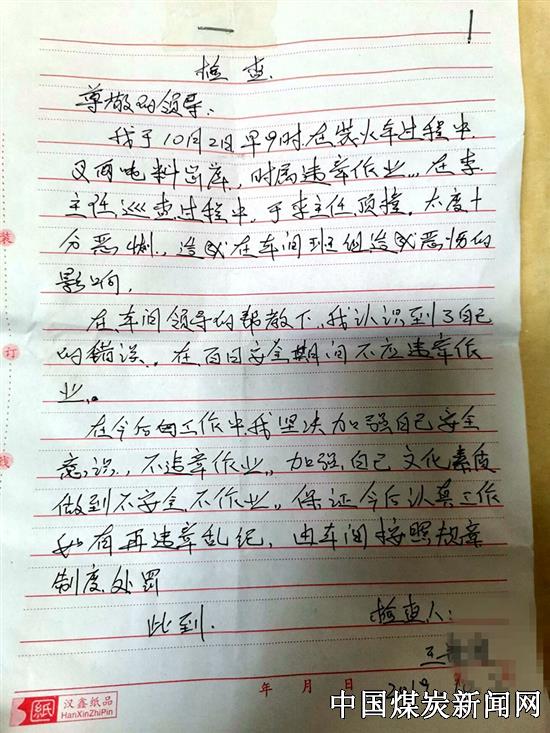 检查
尊敬的领导:
我于10月2日早9时.在装火车过程中.
又两电料岀库,时属违章作业,,,在李
主任巡查过程中,于李主任顶撞.太度十
分恶劣.,造成在车间班组造成恶历的
影响,
在车间领导的帮教下.我认识到了自己
的错误.在百日安全期间不应违章作
业,。
在今后的工作中.我坚决加强自己安全
意识,不违章作业,加强自己文化素质
做到不安全.不作业,保证今后认真工作
如有再违章乱纪,由车间按照规章
制度处罚
此到. 检查人:
王
2019
年 月 日
装
订
线
纸 汉鑫纸品
HanXinZhiPin
中国煤炭新闻网